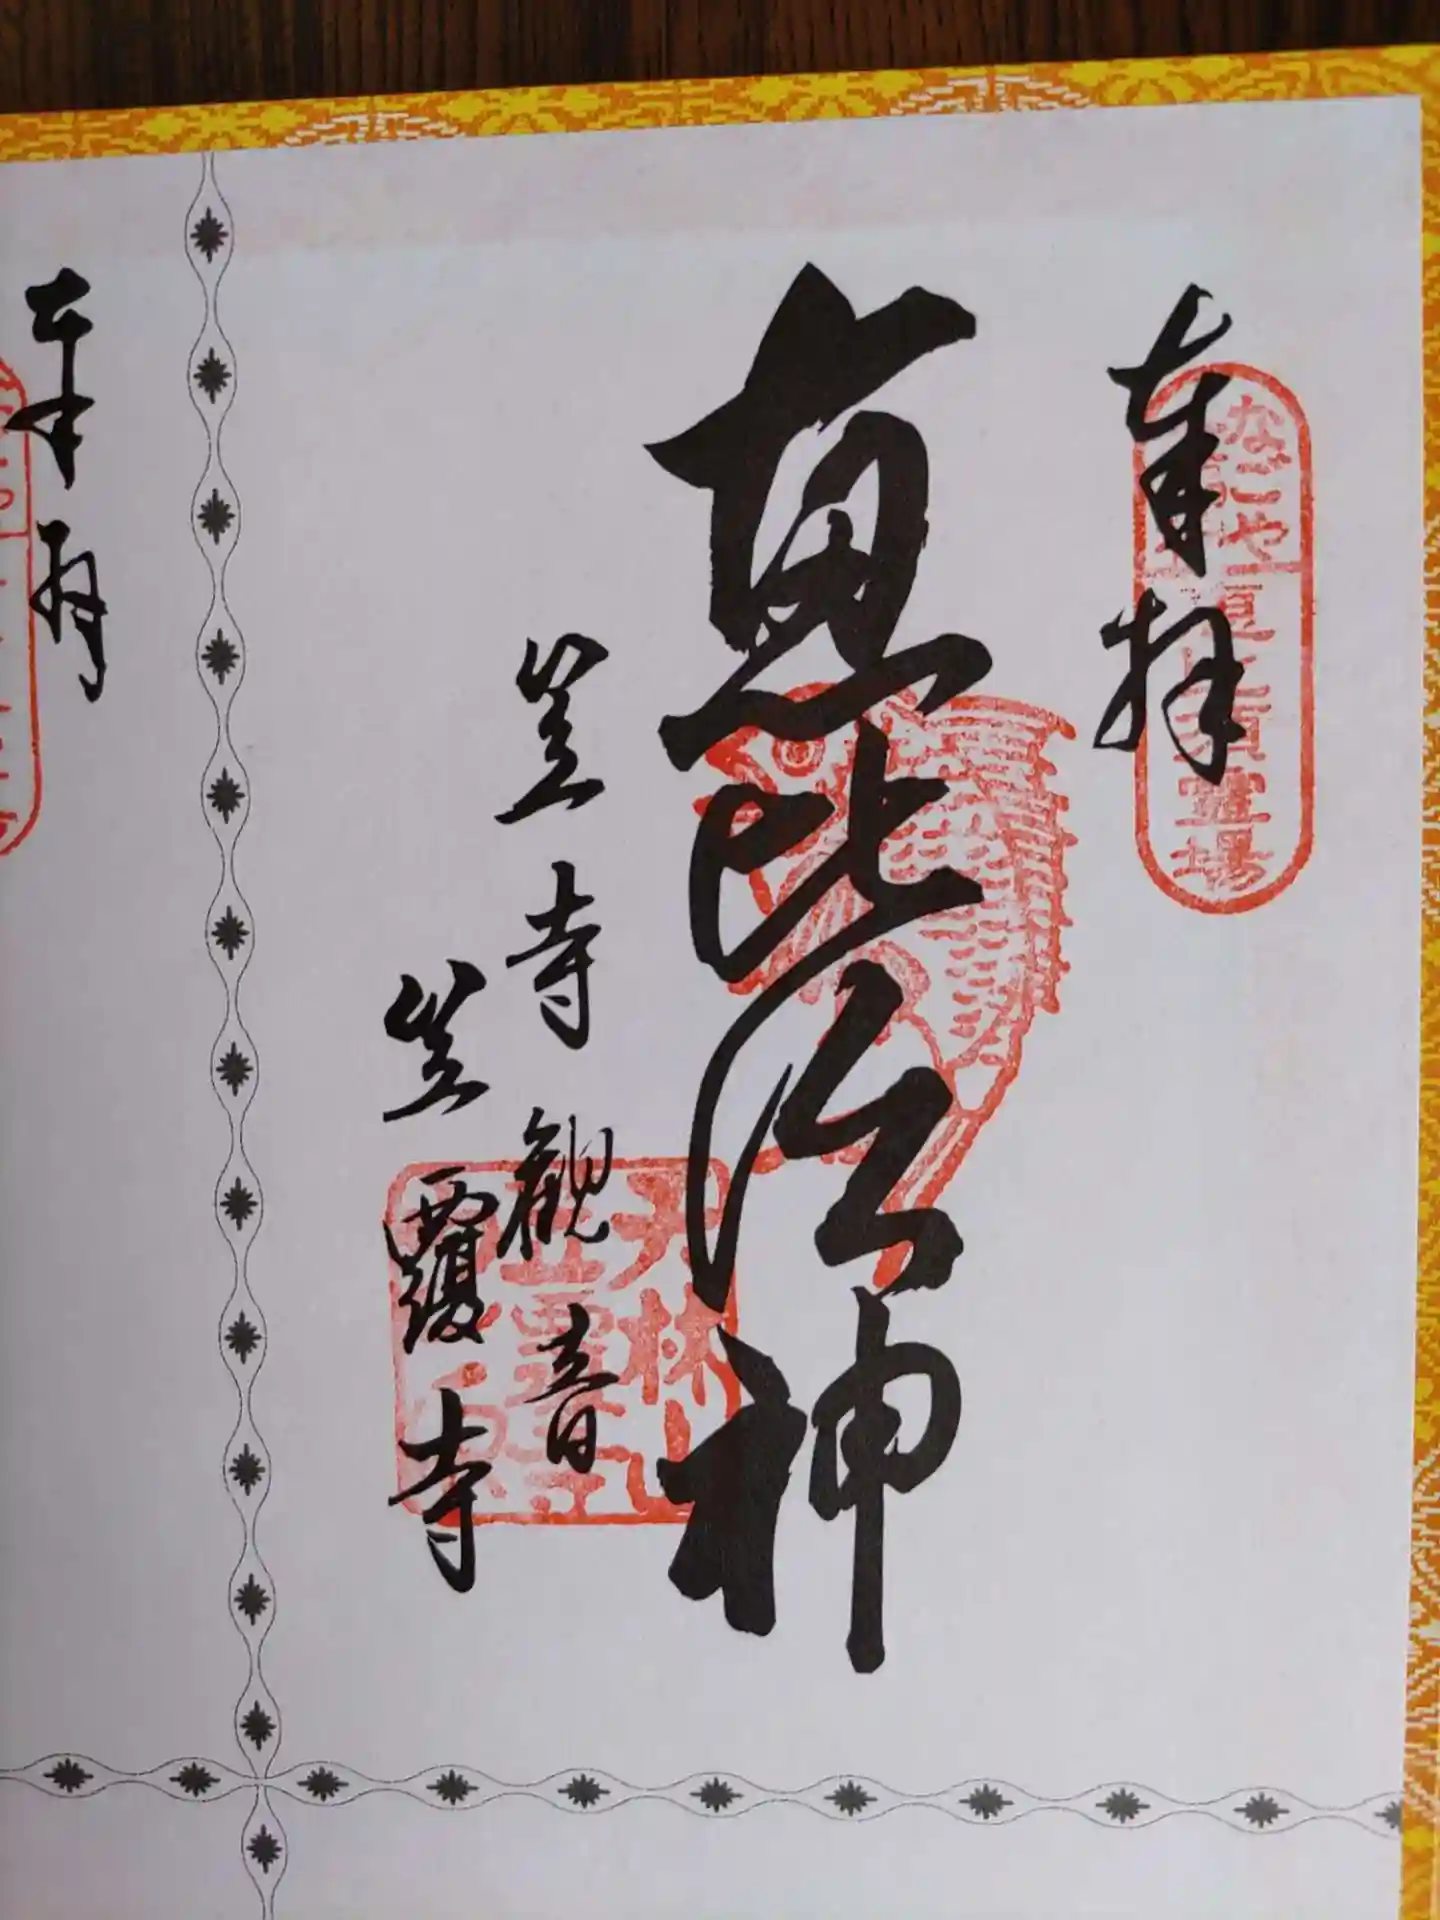 奉拝
なごや
恵比須霊場
恵比須神
笠寺観音
笠覆寺
天林山
奉拝